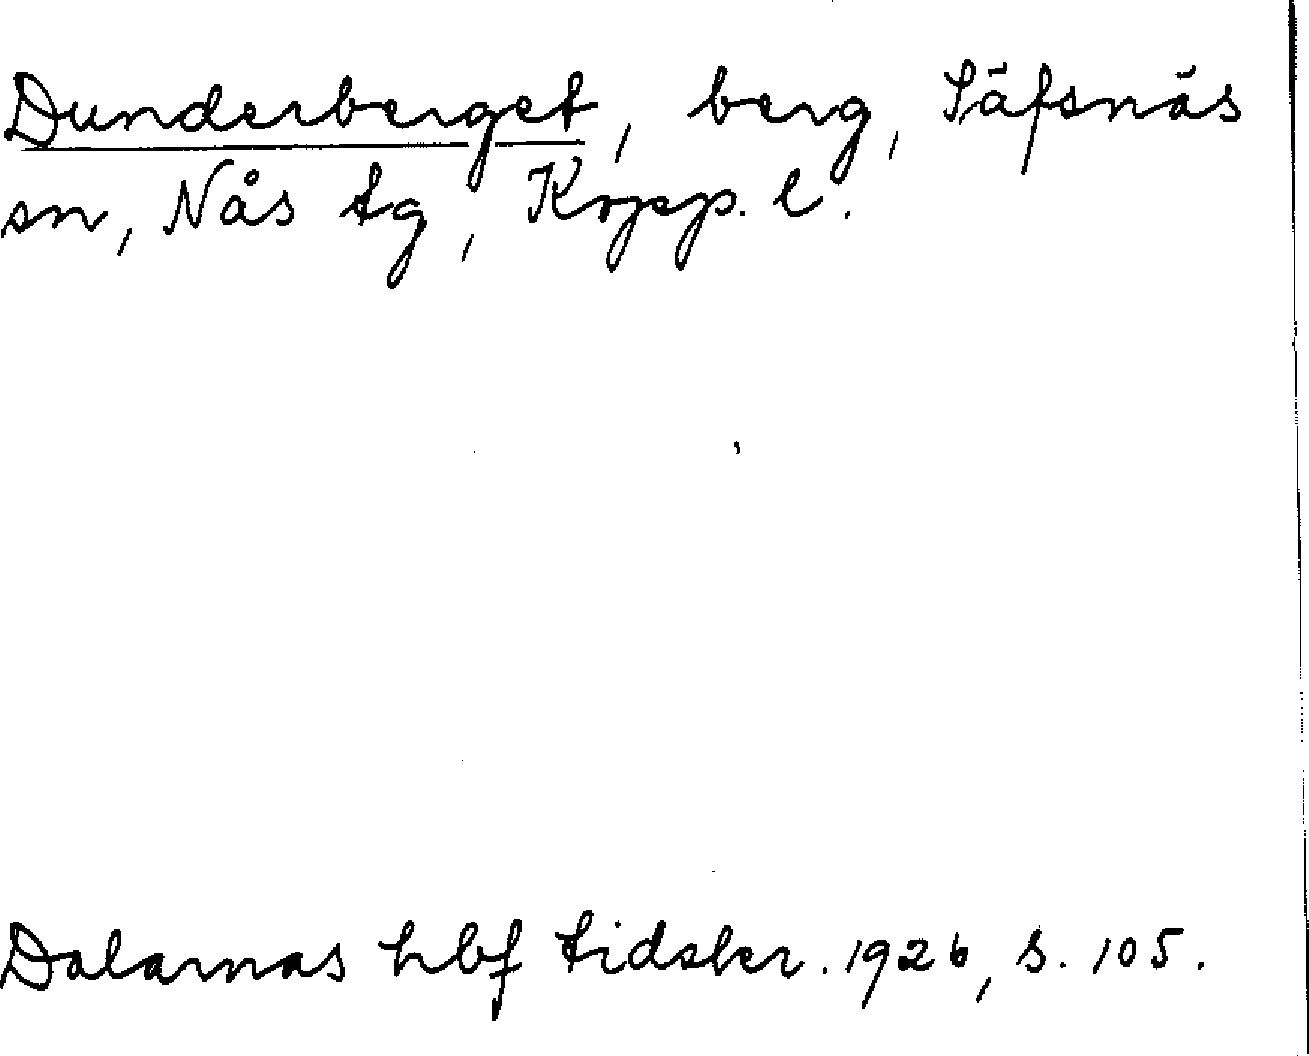 Dunderberget, berg, Säfsnäs
sn, Nås tg, Kopp. l.
Dalarnas hbf tidskr. 1926, s. 105.